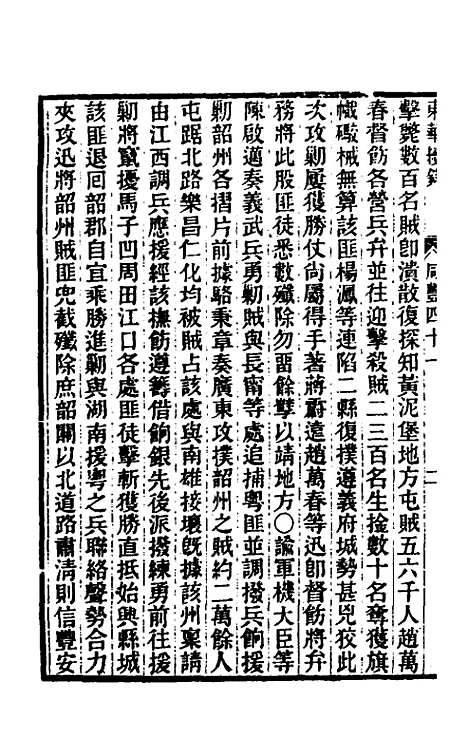 東華續錄 咸豐四十一 二
擊斃數百名賊卽潰散復探知黃泥堡地方屯賊五六千人趙萬
春督飭各營兵弁並往迎擊殺賊二三百名生擒數十名奪獲旗
幟礮械無算該匪楊漋等連陷二縣復撲遵義府城勢甚兇狡此
次攻勦屢獲勝仗尙屬得手著蔣霨遠趙萬春等迅卽督飭將弁
務將此股匪徒悉數殲除勿畱餘孽以靖地方〇諭軍機大臣等
陳啟邁奏義武兵勇勦賊與長甯等處追捕粵匪並調撥兵餉援
勦韶州各摺片前據駱秉章奏廣東攻撲韶州之賊約二萬餘人
屯踞北路樂昌仁化均被賊占該處與南雄接壤旣據該州稟請
由江西調兵應援經該撫飭遵籌借餉銀先後派撥練勇前往援
勦將竄擾馬子凹周田江口各處匪徒擊斬獲勝直抵始興縣城
該匪退回韶郡自宜乘勝進勦與湖南援粵之兵聯絡聲勢合力
夾攻迅將韶州賊匪兜截殲除庶韶關以北道路肅淸則信豐安